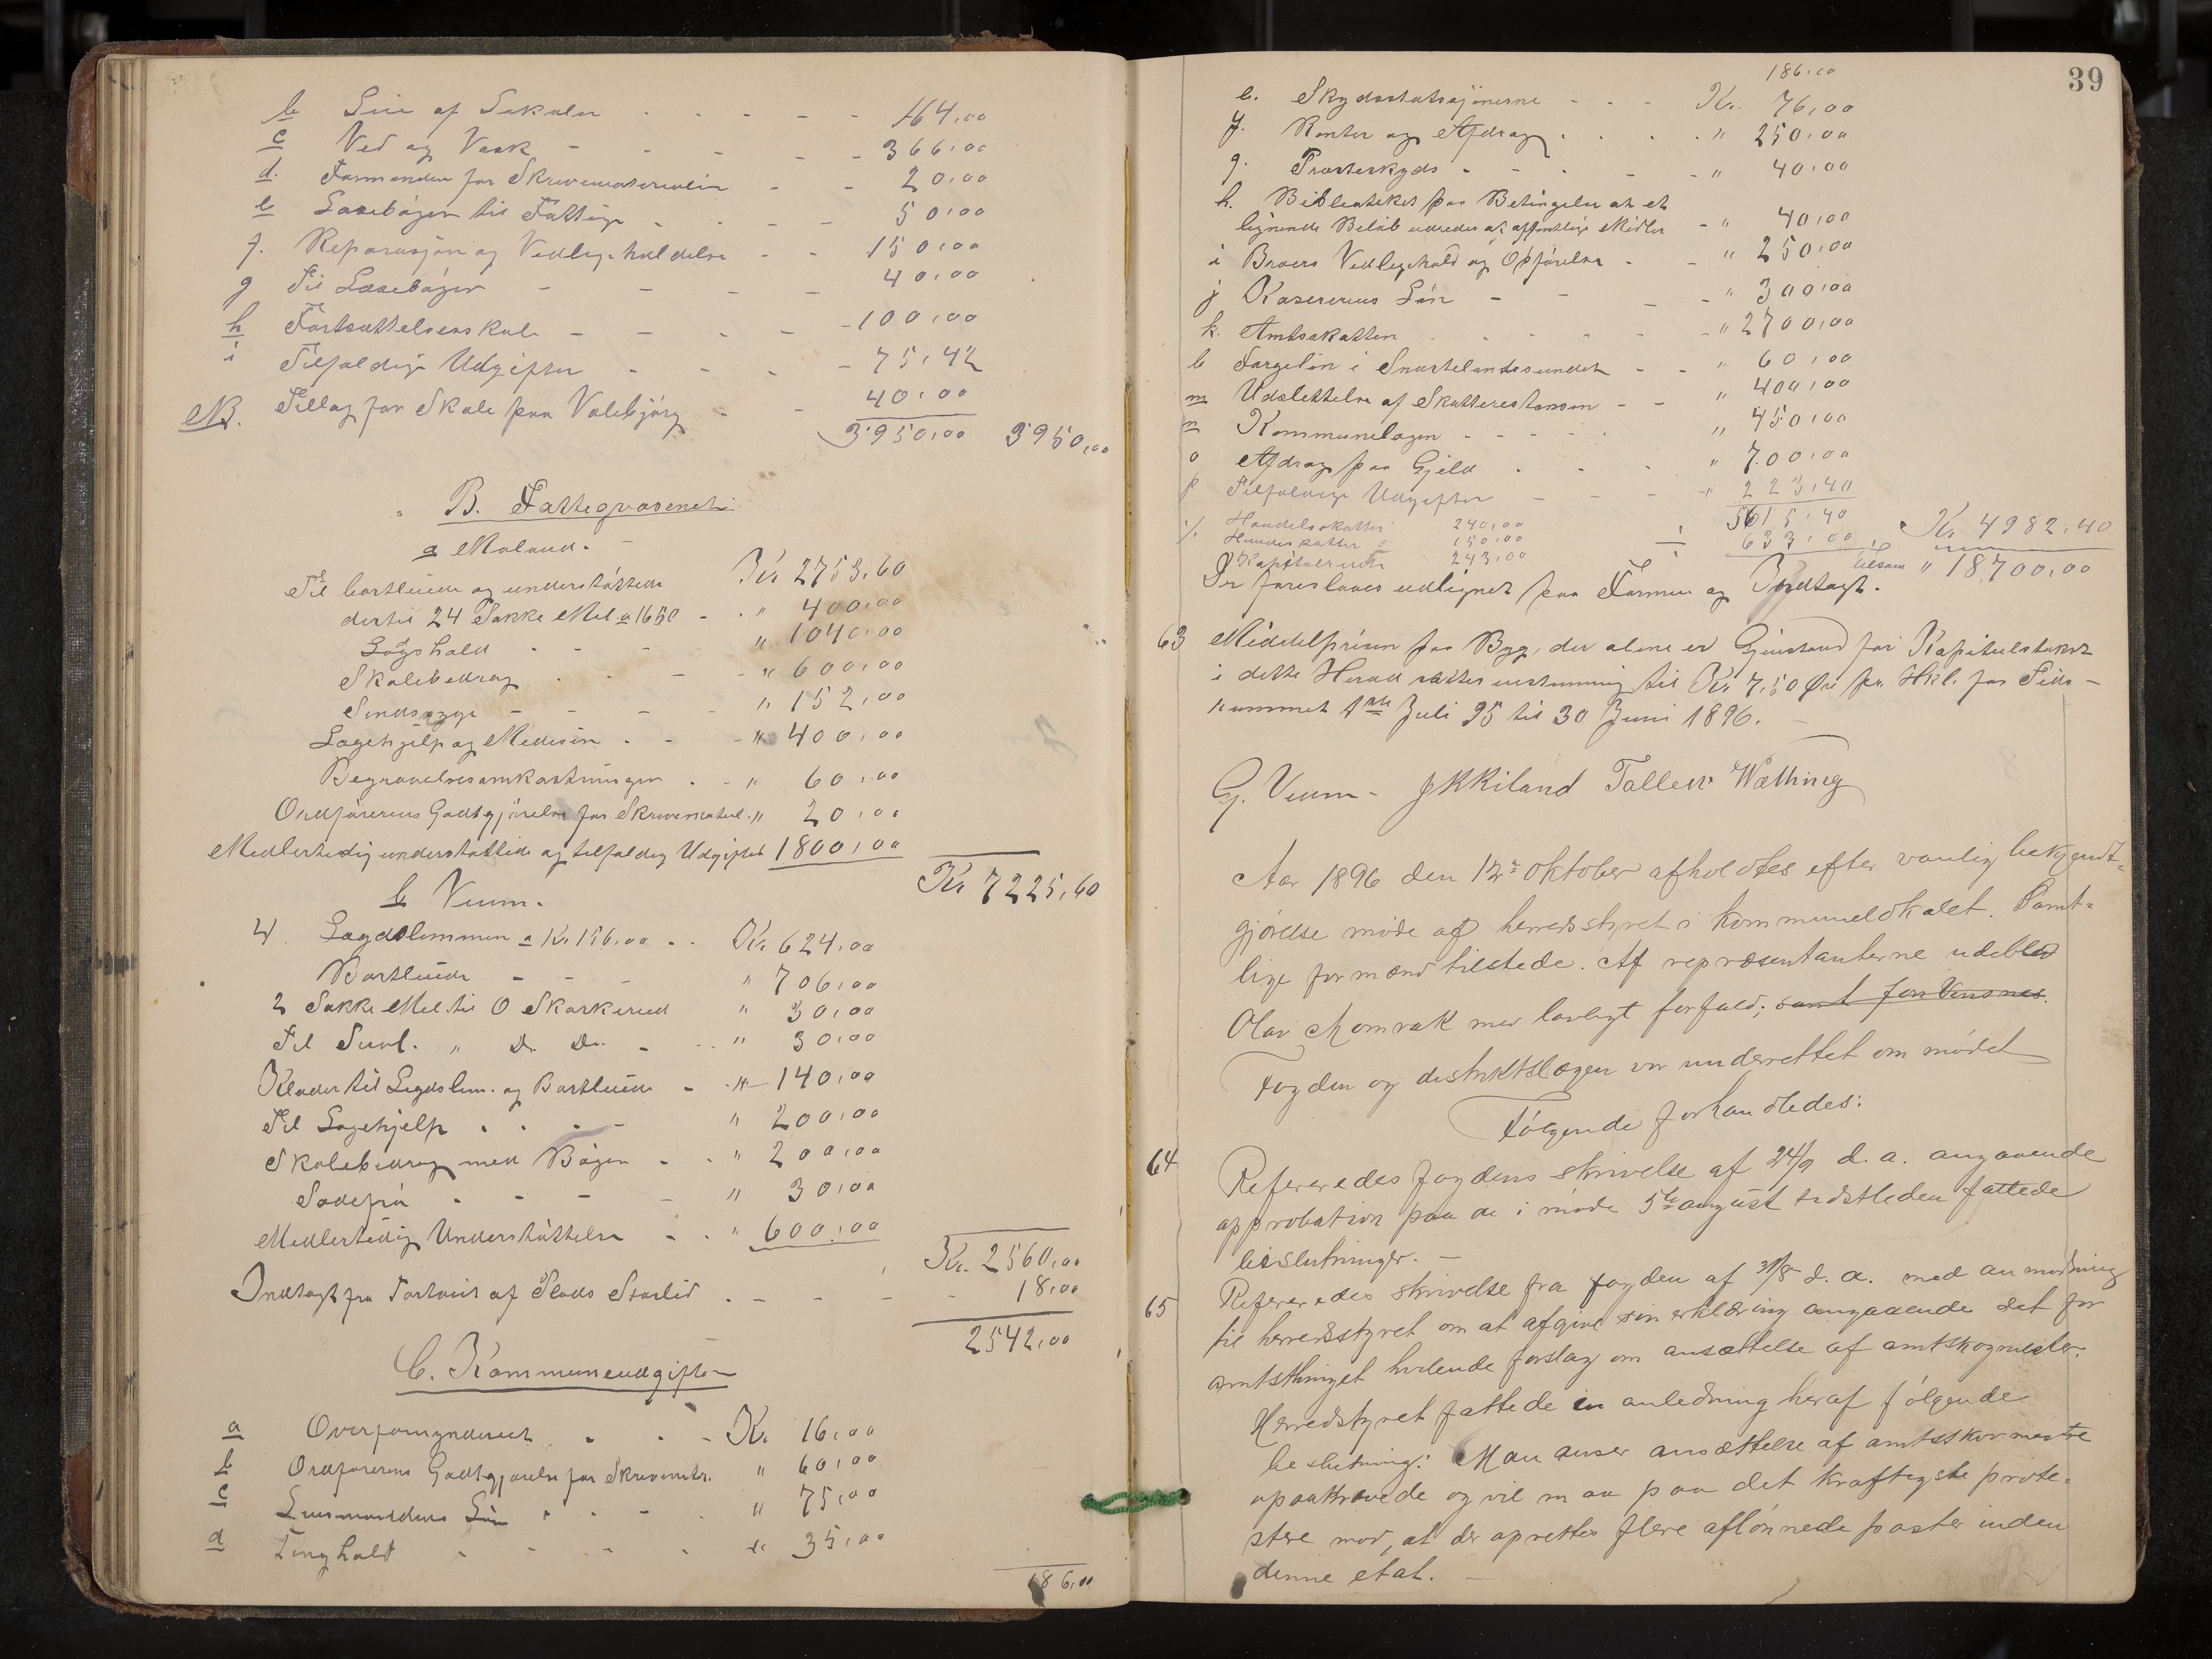 b Leie af Lokaler - - - - - 464,00
c Ved og Vask - - - - - 366,00
d. Formanden for Skrivematerialier - - 20,00
e Læsebøger til Fattige - - - - 50,00
f. Reparasjon og Vedligeholdelse - - 150,00
g Til Læsebøger - - - - 40,00
h Fortsættelsesskole - - - - 100,00
i Tilfældige Udgifter - - - - 75,42
NB. Tillæg for Skole paa Valebjørg - - 40,00
3950,00 3950,00
B. Fattigvæsenet
a Moland.
Til bortleiede og understøttede Kr 2753,60
dertil 24 Sække Mel a 1650 - " 400,00
Lægshold - - - " 1040,00
Skolebidrag - - - - " 600,00
Sindssyge - - - - " 152,00
Lægehjelp og Medisin - - - " 400,00
Begravelsesomkostninger - - " 60,00
Ordførerens Godtgjørelse for Skrivemateriel. " 20,00
Medlertidig understøttede og tilfældig Udgifter 1800,00
Kr 7225,60
b Veum.
4 Lægdslemmer a Kr. 156,00 - - Kr 624,00
Bortleiede - - - " 706,00
2 Sække Mel til O Skarkerud " 30,00
Til Suvl. " Do. Do. - - " 30,00
Klæder til Legdslem. og Bortleiede - " 140,00
Til Lægehjelp - - - - " 200,00
Skolebidrag med Bøger - - " 200,00
Sædefrø - - - - " 30,00
Medlertidig Understøttelse - - " 600,00
Kr. 2560,00
Indtægt fra - - - - 18,00
2542,00
C. Kommuneudgifter
a Overformynderiet - - - Kr. 16,00
b Ordførerens Godtgjørelse for Skrivemtr. " 60,00
c Lensmandens Løn - - - " 75,00
d Tinghold - - - - " 35,00
186,00
39
186,00
e. Skydsstatsjonerne - - - Kr. 76,00
f. Renter og Afdrag - - - - " 250,00
g. Prosteskyds - - - - - " 40,00
h. Biblioteket paa Betingelse at et
lignende Beløb udredes af offentlige Midler - " 40,00
i Broers Vedligehold og Opførelse - - " 250,00
j Kasererens Løn - - - - " 300,00
k. Amtsskatten - - - - - " 2700,00
l Færgeløn i Snartelandssundet - - " 60,00
m Udslettelse af Skatterestanser - - " 400,00
n Kommunelægen - - - - " 450,00
o Afdrag paa Gjeld - - - " 700,00
p Tilfældige Udgifter - - - - " 223,40
5615,40
÷ Handelsskatter 240,00
Hundeskatter 150,00 ÷ 633,00 Kr. 4982,40
Kapitalrente 243,00 tilsam " 18700,00
Der foreslaaes udlignet paa Formue og Indtægt.
63 Middelprisen paa Byg, der alene er Gjenstand for Kapitelstakst
i dette Herred sættes enstemmig til Kr 7,50 Øre pr. Hkl. for Tids-
rummet 1ste Juli 95 til 30 Juni 1896. -
G. Veum - J K Kiland Tallev Wathing
Aar 1896 den 12te oktober afholdtes efter vanlig bekjendt-
gjørelse møde af herredsstyret i kommunelokalet. Samt-
lige formænd tilstede. Af repræsentanterne udeblev
Olav Momrak med lovligt forfald; samt Jon Vensnes.
Fogden og distriktslægen var underrettet om mødet
Følgende forhandledes:
64 Refereredes fogdens skrivelse af 24/9 d. a. angaaende
approbation paa de i møde 5te august sidstleden fattede
beslutninger. -
65 Refereredes skrivelse fra fogden af 31/8 d. a. med anmodning
til herredsstyret om at afgive sin erklæring angaaende det for
amtsthinget hvilende forslag om ansættelse af amtskogmester.
Herredstyret fattede en anledning heraf følgende
beslutning: Man anser ansættelse af amtsskovmestre
upaakrævede og vil man paa det kraftigste prote-
stere mod, at der oprettes flere aflønnede poster inden
denne etat. -